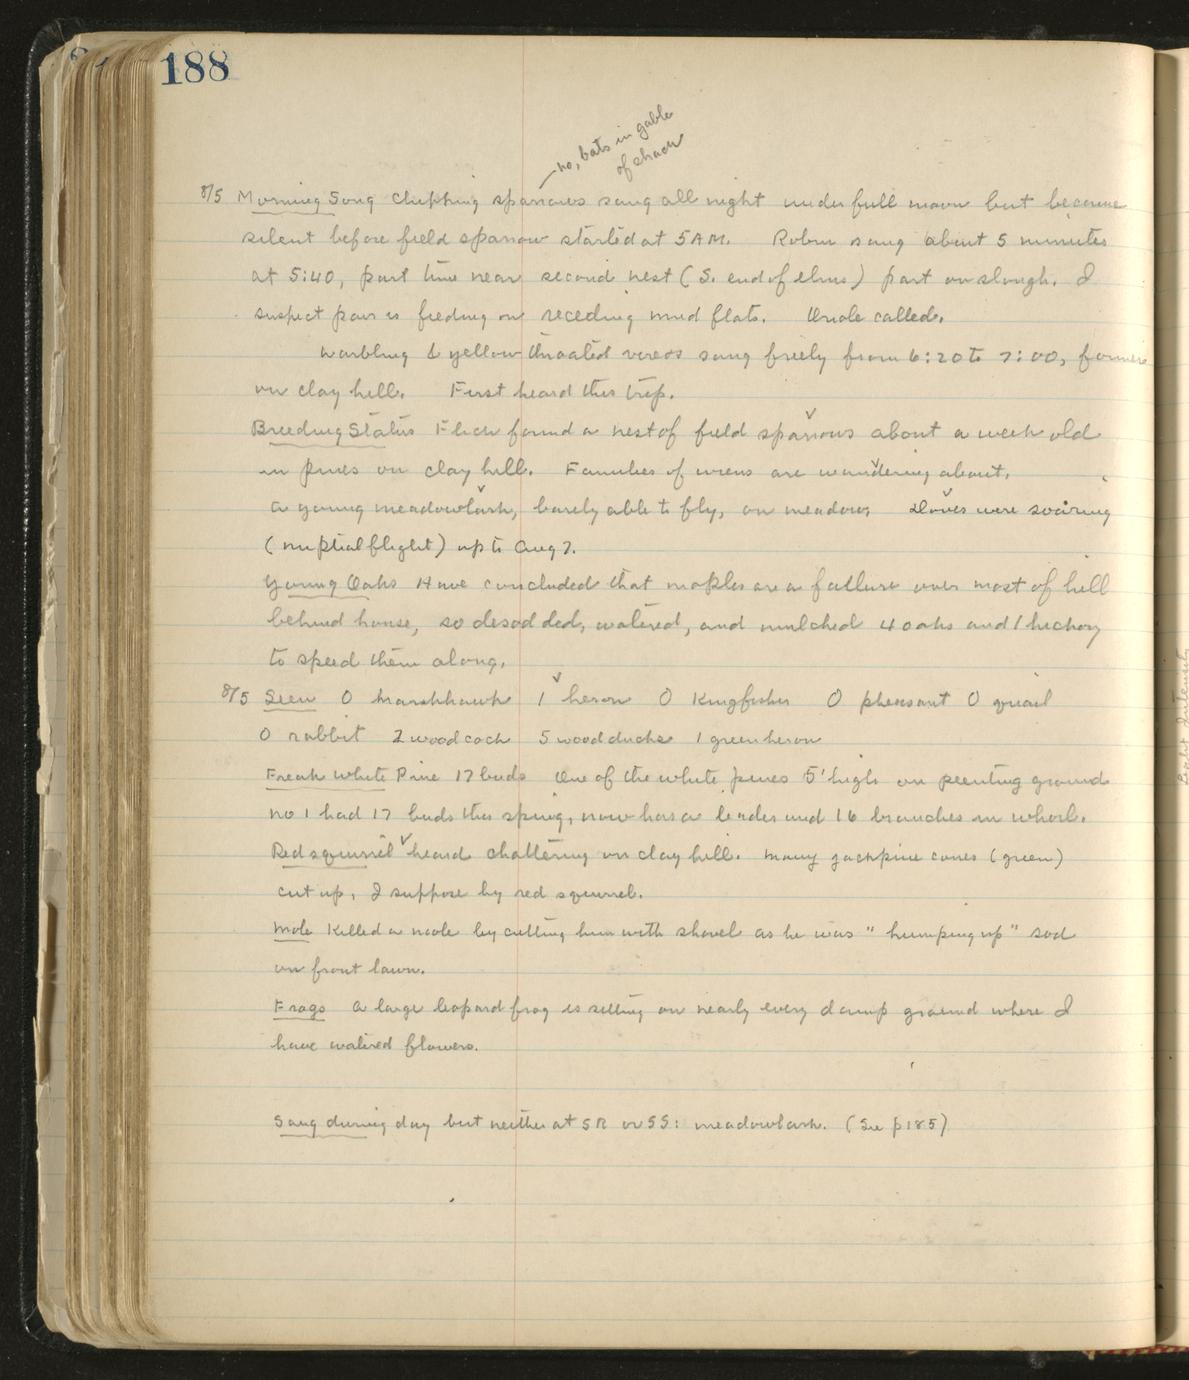 188
— no, bats in gable
of shack
8/5 Morning Song Chipping sparrows sang all night under full moon but became
silent before field sparrow started at 5 AM. Robin sang about 5 minutes
at 5:40, part time near second nest (S. end of elms) part on slough. I
suspect pair is feeding on receding mud flats. Oriole called.
Warbling & yellow throated vireos sang freely from 6:20 to 7:00, former
on clay hill. First heard this trip.
Breeding Status Flick found a nest of field sparrows about a week old
in pines on clay hill. Families of wrens are wandering about.
A young meadowlark, barely able to fly, on meadow. Doves were soaring
(nuptial flight) up to Aug 7.
Young Oaks Have concluded that maples are a failure over most of hill
behind house, so desodded, watered, and mulched 4 oaks and 1 hickory
to speed them along.
8/5 Seen 0 marshhawk 1 heron 0 Kingfisher 0 pheasant 0 quail
0 rabbit 2 woodcock 5 woodducks 1 green heron
Freak White Pine 17 buds One of the white pines 5' high on peenting ground
no 1 had 17 buds this spring, now has a leader and 16 branches in whorl.
Red squirrel heard chattering on clay hill. Many jackpine cones (green)
cut up, I suppose by red squirrel.
Mole Killed a mole by cutting him with shovel as he was "humping up" sod
on front lawn.
Frogs A large leopard frog is sitting on nearly every damp ground where I
have watered flowers.
Sang during day but neither at SR or SS: meadowlark. (See p 185)